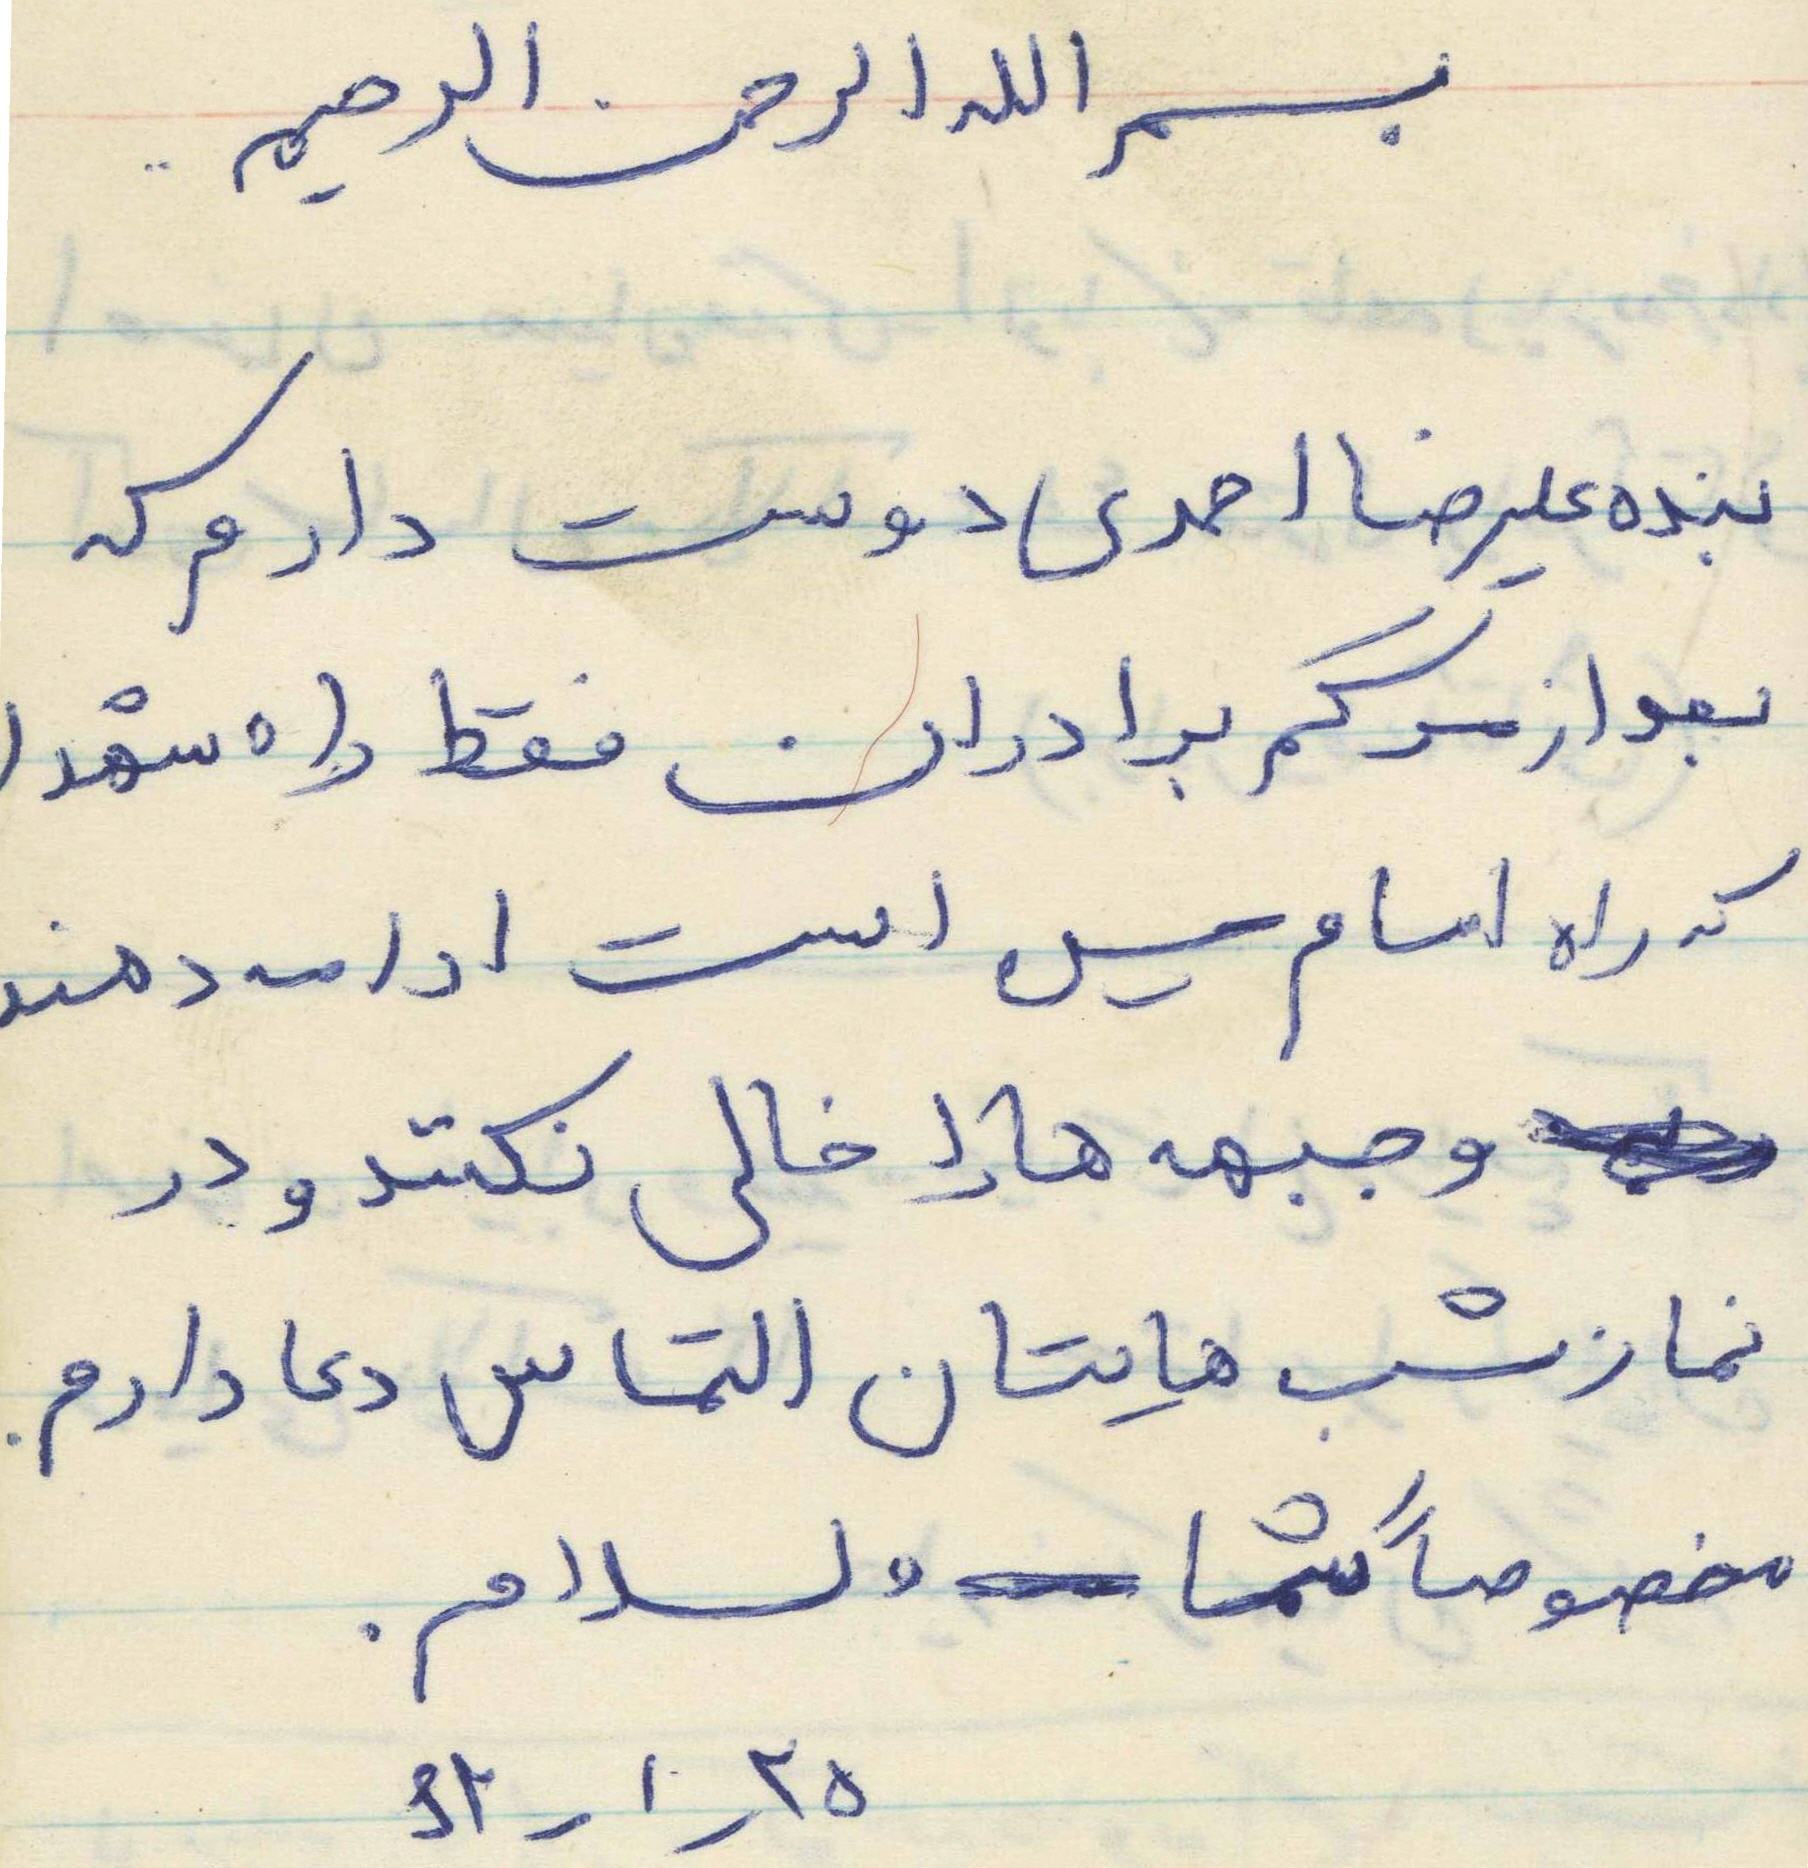 بسم الله الرحمن الرحیم
بنده علیرضا احمدی دوست دارم که
بعد از مرگم برادران فقط راه شهدا
که راه امام حسین است ادامه دهند
وجبهه ها را خالی نکنند و در
نماز شب هایتان التماس دعا دارم.
مخصوصاً شما ولسلام.
۲۵ ر ۱۰ ر ۶۲